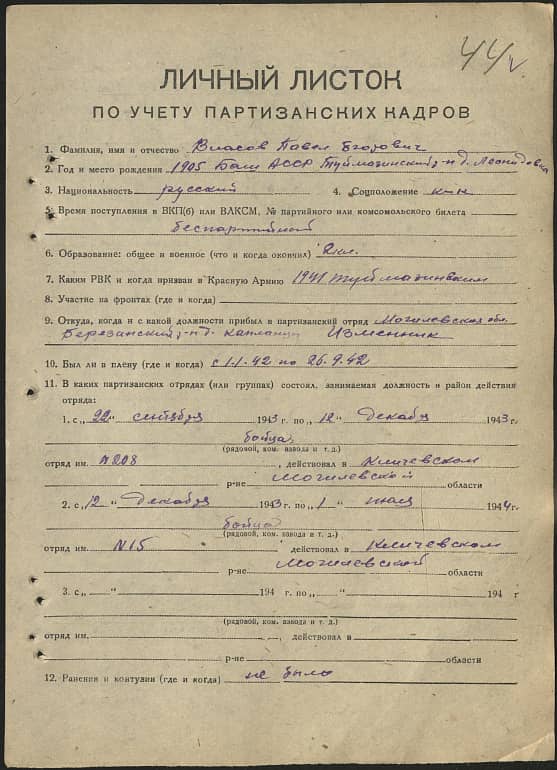 44
ЛИЧНЫЙ ЛИСТОК
ПО УЧЕТУ ПАРТИЗАНСКИХ КАДРОВ
1. Фамилия, имя и отчество Власов Павел Егорович
2. Год и место рождения 1905 Баш АССР Туймазинский р-н д. Леонидовка
3. Национальность русский 4. Соцположение к-н
5. Время поступления в ВКП(б) или ВЛКСМ, № партийного или комсомольского билета
беспартийный
6. Образование: общее и военное (что и когда окончил) 2 кл.
7. Каким РВК и когда призван в Красную Армию 1941 Туймазинским
8. Участие на фронтах (где и когда)
9. Откуда, когда и с какой должности прибыл в партизанский отряд Могилевская обл.
Березанский р-н д. Изменник
10. Был ли в плену (где и когда) с 1.1.42 по 26.9.42
11. В каких партизанских отрядах (или группах) состоял, занимаемая должность и район действия
отряда:
1. с „22“ сентября 1943 г. по „12“ декабря 1943 г.
бойца
(рядовой, ком. взвода и т. д.)
отряд им. №208 , действовал в Кличевском
р-не Могилевской области
2. с „12“ декабря 1943 г. по „1“ июля 1944 г.
бойца
(рядовой, ком. взвода и т. д.)
отряд им. №15 действовал в Кличевском
р-не Могилевской области
3. с „ “ 194 г. по „ “ 194 г
(рядовой, ком. взвода и т. д.)
отряд им. , действовал в
р-не области
12. Ранения и контузии (где и когда) не было